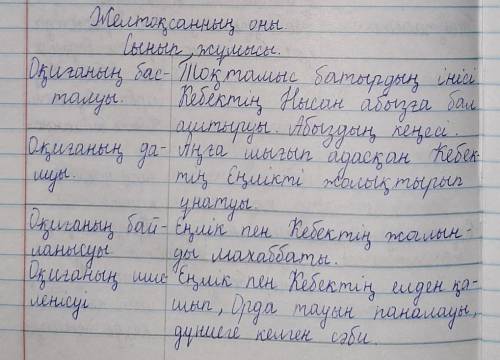 Желтоқсанның оны.
Сынып жұмысы.
Оқиғаның бас- Тоқтамыс батырдың інісі
талуы. Кебектің Нысан абызға бал
аштыруы. Абыздың кеңесі.
Оқиғаның да- Аңға шығып адасқан Кебек-
муы. тің Еңлікті жолықтырып
ұнатуы.
Оқиғаның бай- Еңлік пен Кебектің жалын-
ланысуы ды махаббаты.
Оқиғаның шие- Еңлік пен Кебектің елден қа-
ленісуі шып, Орда тауын паналауы,
дүниеге келген сәби.